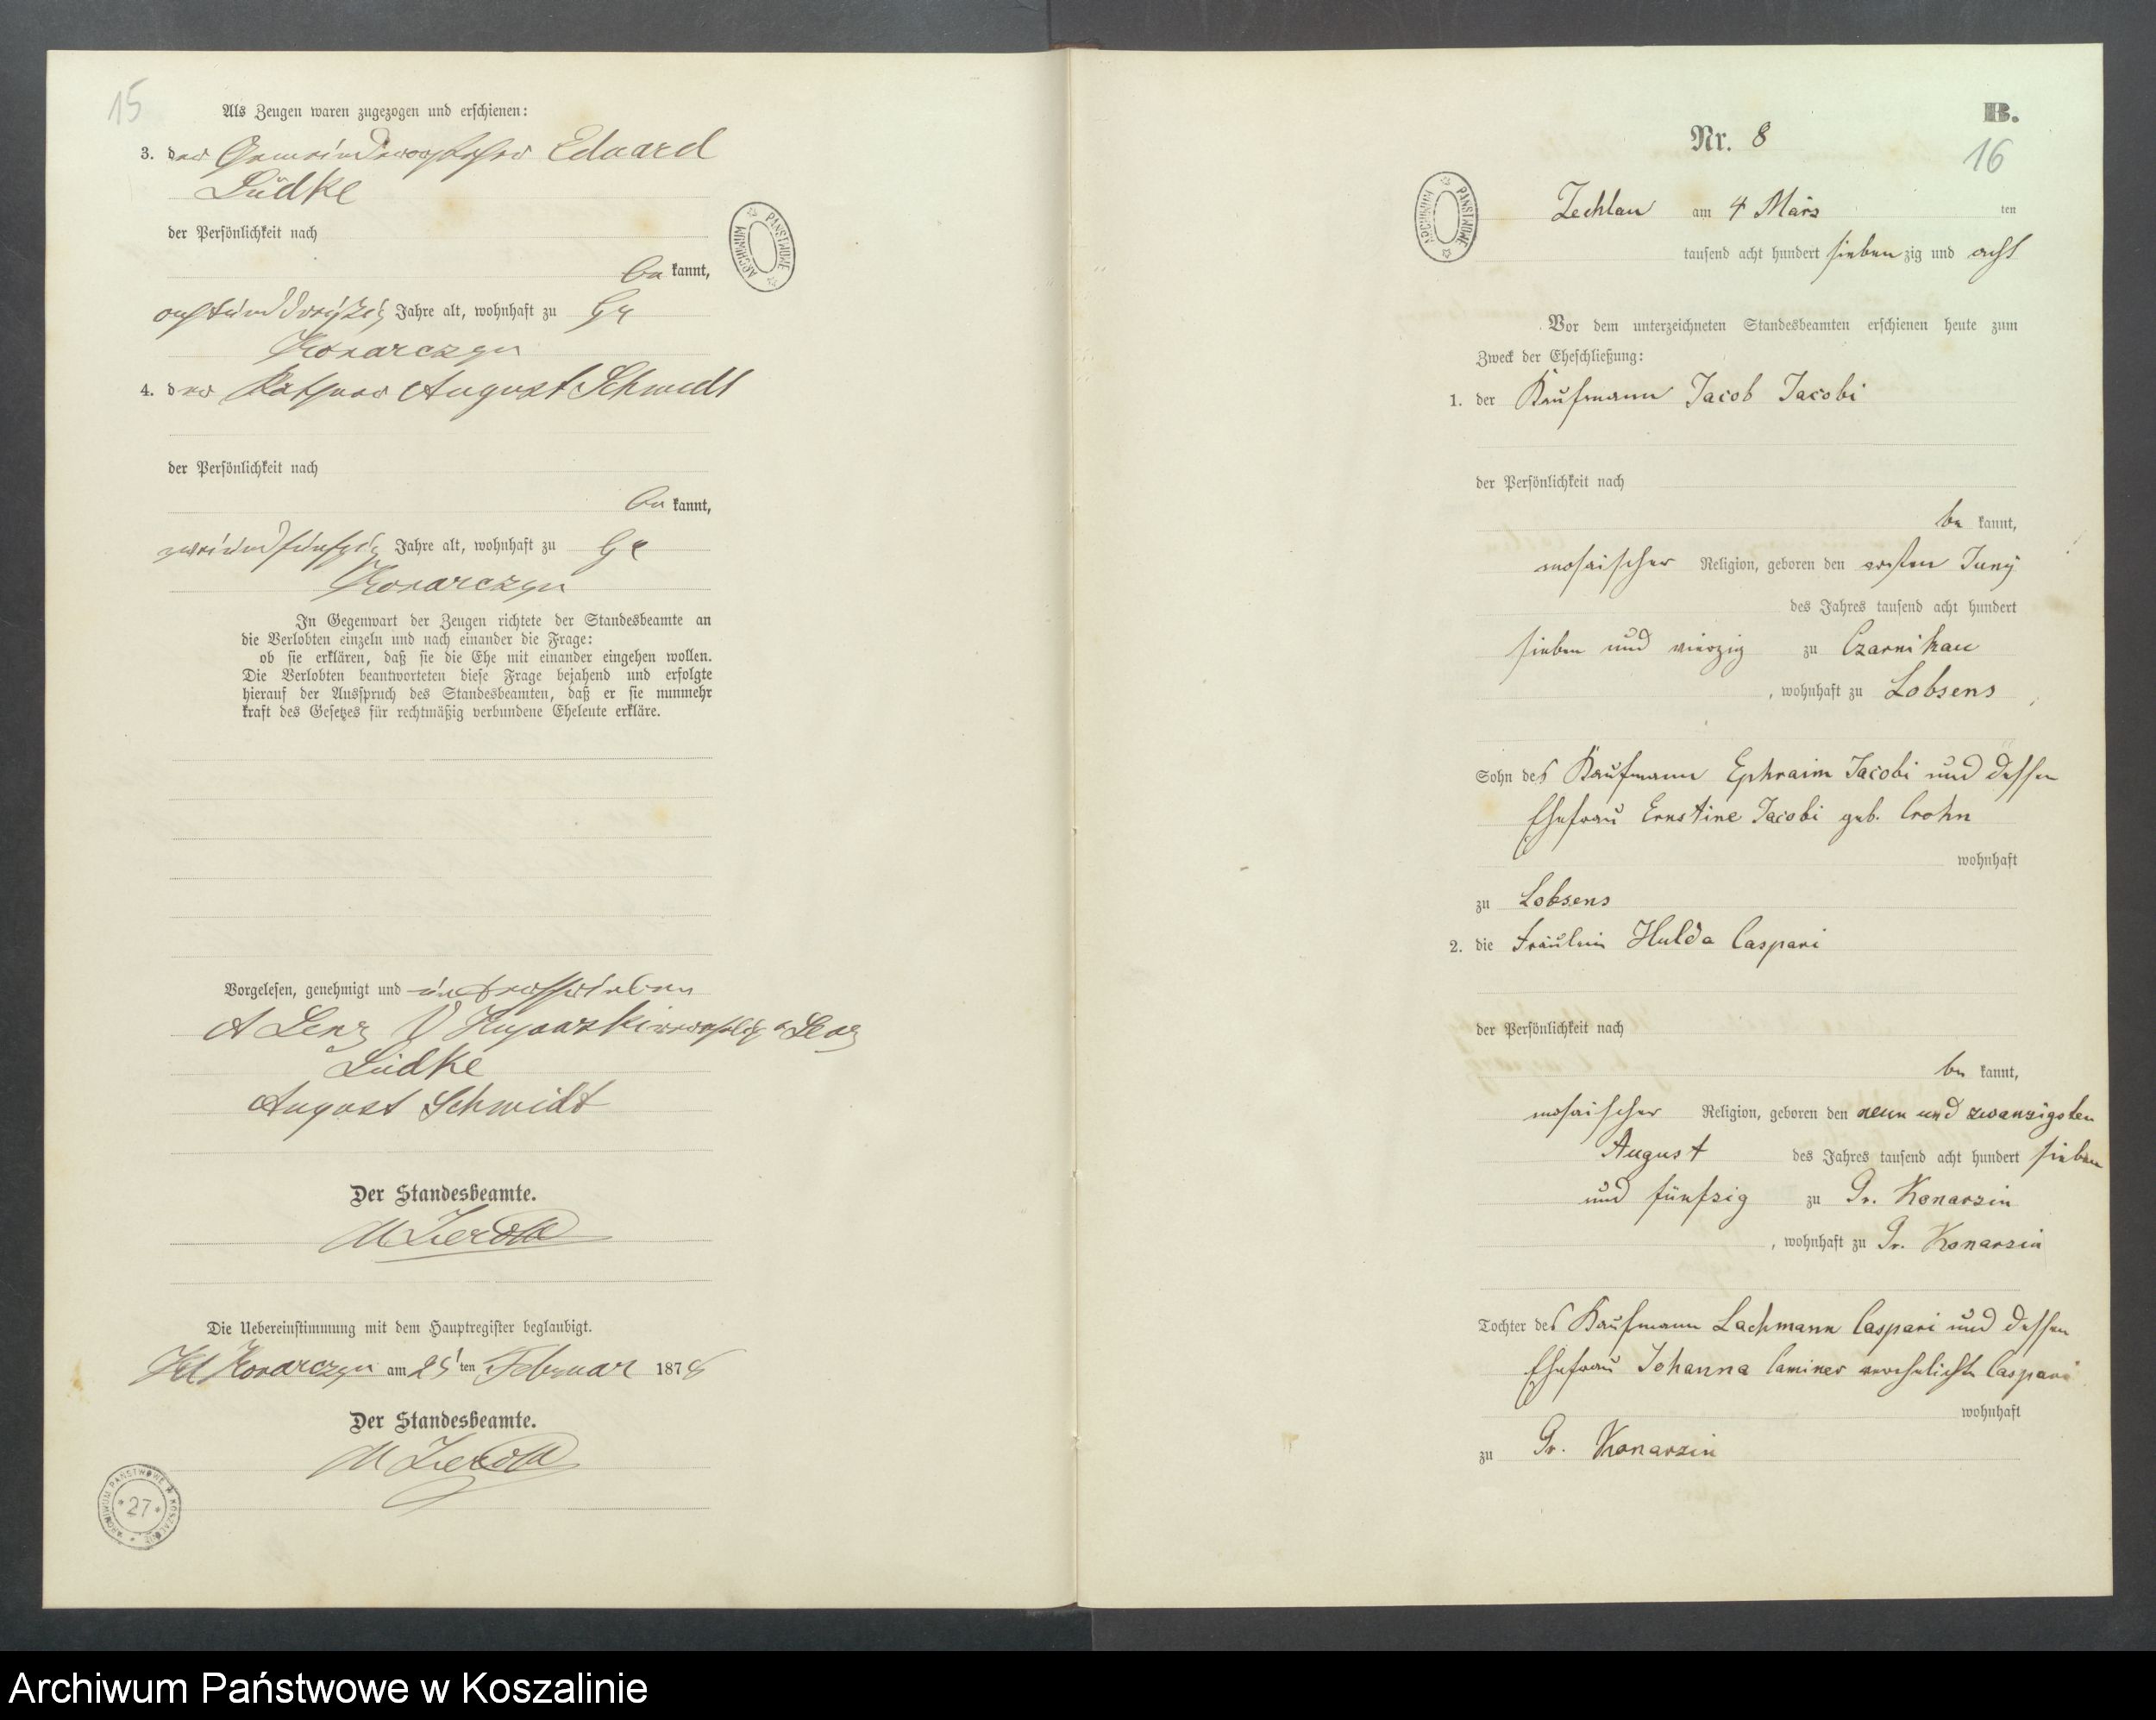 15
Als Zeugen waren zugezogen und erschienen:
3. der Gemeindevorsteher Eduard
Lüdke
der Persönlichkeit nach
be kannt,
achtunddreißig Jahre alt, wohnhaft zu Gr
Konarczyn
4. der Käthner August Schmidt
der Persönlichkeit nach
be kannt,
zweiundfünfzig Jahre alt, wohnhaft zu Gr
Konarczyn
In Gegenwart der Zeugen richtete der Standesbeamte an
die Verlobten einzeln und nach einander die Frage:
ob sie erklären, daß sie die Ehe mit einander eingehen wollen.
Die Verlobten beantworteten diese Frage bejahend und erfolgte
hierauf der Ausspruch des Standesbeamten, daß er sie nunmehr
kraft des Gesetzes für rechtmäßig verbundene Eheleute erkläre.
Vorgelesen, genehmigt und unterschrieben
A Lenz V verehlig Lenz
Lüdke
August Schmidt
Der Standesbeamte.
Die Uebereinstimmung mit dem Hauptregister beglaubigt.
Kl Konarczyn am 25 ten Februar 1878
Der Standesbeamte.
ARCHIWUM PAŃSTWOWE W KOSZALINIE
* 27 *
ARCHIWUM PAŃSTWOWE
B.
Nr. 8
16
ARCHIWUM PAŃSTWOWE
Zechlau am 4 März ten
tausend acht hundert sieben zig und acht
Vor dem unterzeichneten Standesbeamten erschienen heute zum
Zweck der Eheschließung:
1. der Kaufmann Jacob Jacobi
der Persönlichkeit nach
be kannt,
mosaischer Religion, geboren den ersten Juny
des Jahres tausend acht hundert
sieben und vierzig zu Czarnikau
, wohnhaft zu Lobsens
Sohn des Kaufmann Ephraim Jacobi und dessen
Ehefrau Ernstine Jacobi geb. Crohn
wohnhaft
zu Lobsens
2. die Fräulein Hulda Caspari
der Persönlichkeit nach
be kannt,
mosaischer Religion, geboren den neun und zwanzigsten
August des Jahres tausend acht hundert sieben
und fünfzig zu Gr. Konarzin
, wohnhaft zu Gr. Konarzin
Tochter des Kaufmann Lachmann Caspari und dessen
Ehefrau Johanna Caminer verehelichte Caspari
wohnhaft
zu Gr. Konarzin
Archiwum Państwowe w Koszalinie